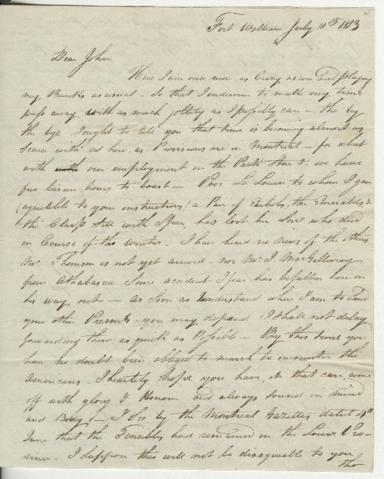 Fort William July 11th 1813
Dear John
Here I am once more as Crazy as ever and playing
my Pranks as usual. So that I endeavour to make my time
pass away with as much jollity as I possibly can – tho by
the bye I ought to tell you that time is becoming almost as
Scarce with us here, as Provisions are in Montreal – for what
with our employment in the we have
few leisure hours to boast – Poor La to whom I gave
(agreeable to your instructions) a Pair of the
& the Clasp has lost her who died
in Course of the winter. I have heard no news of the others
Mr. Thomson is not yet arrived nor Mr. J. MacGillivray
from Athabasca Some accident I fear has befallen him on
his way out – as soon as I understand where I am to send
your other Presents – you may depend I shall not delay
forwarding them as quick as Possible – By this time you
have no doubt been obliged to march to encounter the
Americans. I heartily hope you have, in that case, come
off with glory & Honour and always sound in mind
and Body – I See by the Montreal Gazettes dated
June that the Fencibles had remained in the Lower Pro-
vince. I suppose this will not be disagreeable to you
tho